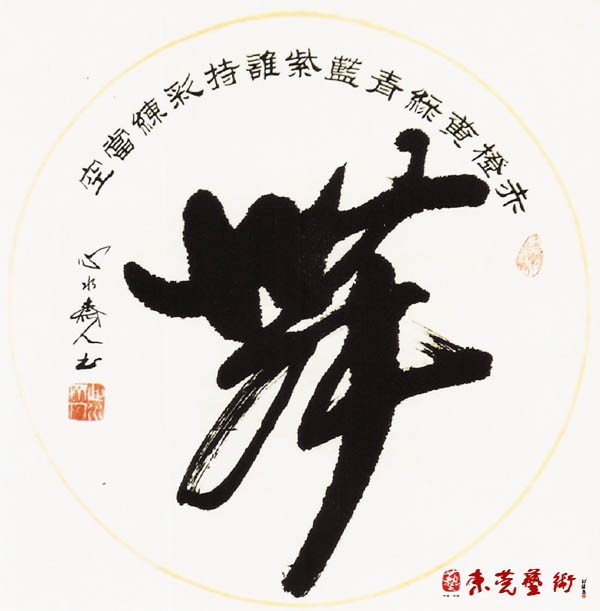 赤橙黃綠青藍紫誰持彩練當空
舞
心水斋人书
東莞藝術